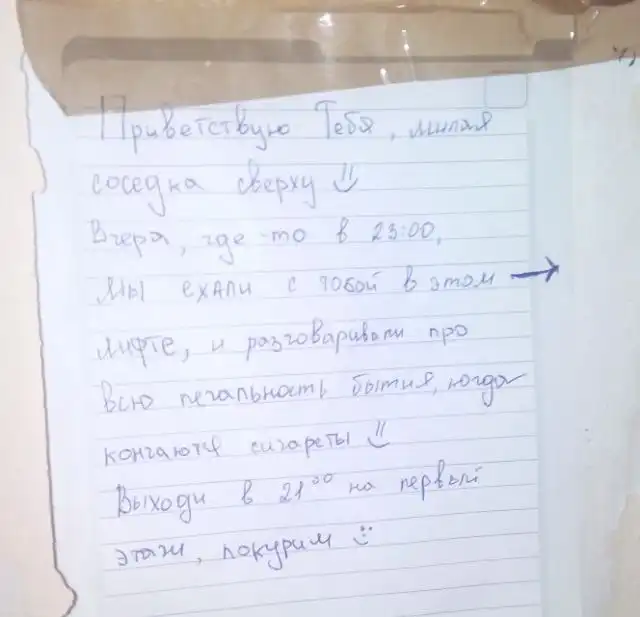 Приветствую Тебя, милая
соседка сверху =)
Вчера, где-то в 23:00,
мы ехали с тобой в этом →
лифте, и разговаривали про
всю печальность бытия, когда
кончаются сигареты =)
Выходи в 21⁰⁰ на первый
этаж, покурим :)